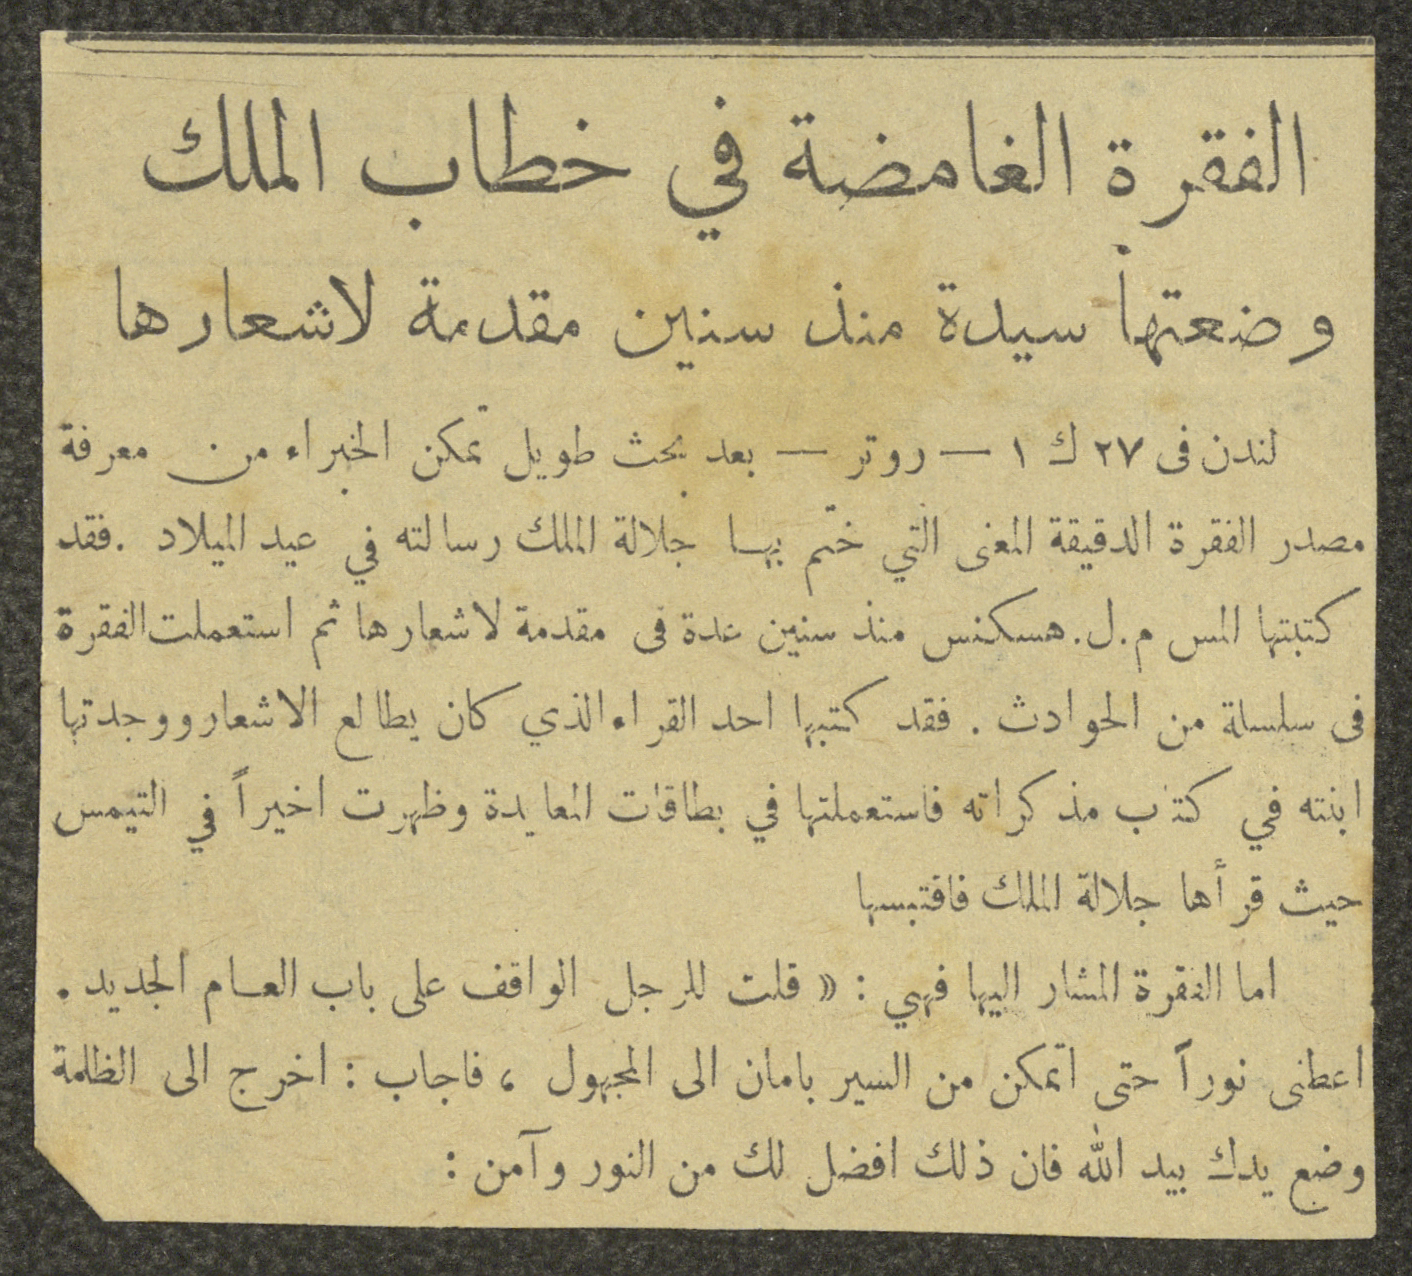 الفقرة الغامضة في خطاب الملك
وضعتها سيدة منذ سنين مقدمة لاشعارها
لندن فى ٢٧ ك ١ — روتر — بعد بحث طويل تمكن الخبراء من معرفة
مصدر الفقرة الدقيقة المغنى التي ختم بها جلالة الملك رسالته في عيد الميلاد . فقد
كتبتها المس م . ل . هسكنس منذ سنين عدة فى مقدمة لاشعارها ثم استعملت الفقرة
فى سلسلة من الحوادث . فقد كتبها احد القراء الذي كان يطالع الاشعار ووجدتها
ابنته في كتاب مذكراته فاستعملتها في بطاقات المعايدة وظهرت اخيراً في التيمس
حيث قرأها جلالة الملك فاقتبسها
اما الفقرة المشار اليها فهي : « قلت للرجل الواقف على باب العام الجديد .
اعطنى نوراً حتى اتمكن من السير بامان الى المجهول ، فاجاب : اخرج الى الظلمة
وضع يدك بيد الله فان ذلك افضل لك من النور وآمن :